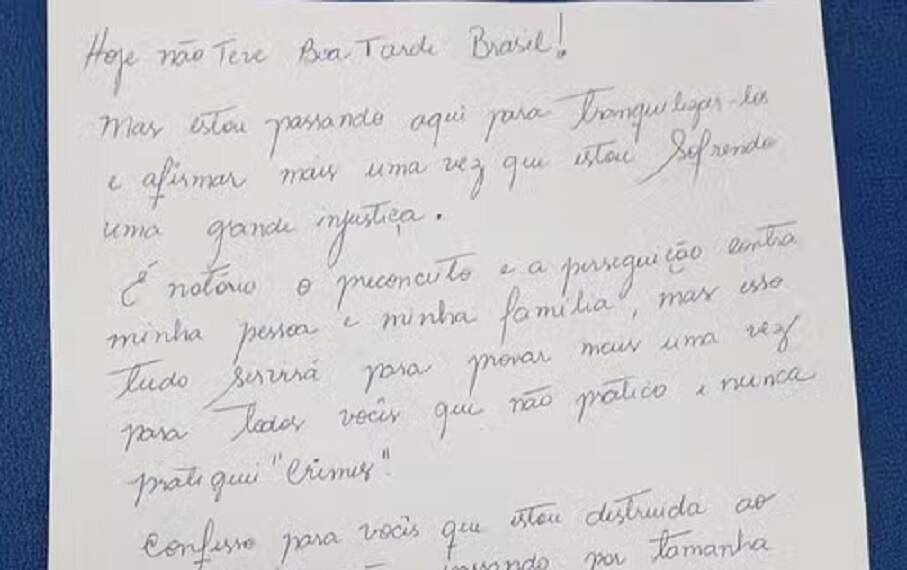 Hoje não Teve Boa Tarde Brasil!
Mas estou passando aqui para Tranquilizar-los
e afirmar mais uma vez que estou Sofrendo
uma grande injustiça.
É notório o preconceito e a perseguição contra
minha pessoa e minha família, mas isso
Tudo Servirá para provar mais uma vez
para Todos vocês que não pratico e nunca
pratiquei "Crimes".
Confesso para vocês que estou destruida ao
por Tamanha